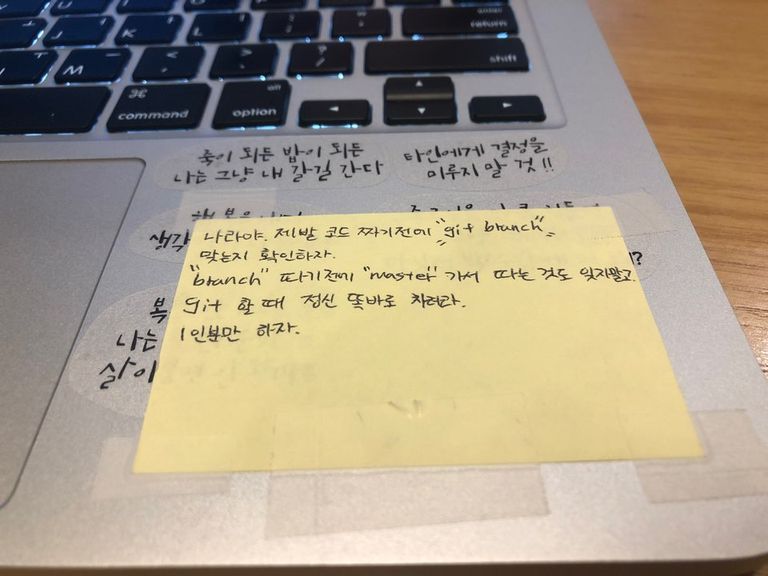 enter
return
shift
alt
⌘
command
option
M
K
L
죽이 되든 밥이 되든
나는 그냥 내 갈길 간다
타인에게 결정을
미루지 말 것!!
생각
나라야. 제발 코드 짜기전에 "git branch"
맞는지 확인하자.
"branch" 따기전에 "master" 가서 따는 것도 잊지말고.
git 할 때 정신 똑바로 차려라.
1인분만 하자.
복
나는
삶이